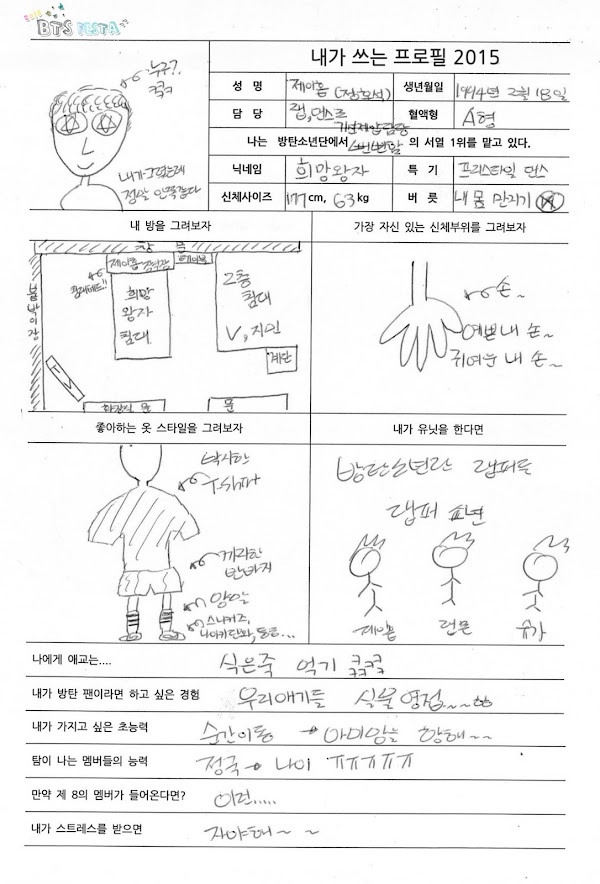 2015 BTS FESTA
내가 쓰는 프로필 2015
누구?
ㅋㅋ
내가 그렸는데
정말 안똑같다
성 명 제이홉 (정호석) 생년월일 1994년 2월 18일
담 당 랩, 댄스 혈액형 A형
나는 방탄소년단에서 의 서열 1위를 맡고 있다.
닉네임 희망왕자 특 기 프리스타일 댄스
신체사이즈 177cm, 63kg 버 릇 내 몸 만지기
내 방을 그려보자
창 문
제이홉
붙박이장
희망
왕자
침대
2층
침대
V, 지민
계단
TV
화장실 문
문
가장 자신 있는 신체부위를 그려보자
손~
예쁜 내 손~
귀여운 내 손~
좋아하는 옷 스타일을 그려보자
박시한
T-shirt
반바지
양말
스니커즈,
내가 유닛을 한다면
방탄소년단 래퍼들
랩퍼
제이홉 랩몬 슈가
나에게 애교는.... 식은죽 먹기 ㅋㅋㅋ
ㅋㅋㅋ
내가 방탄 팬이라면 하고 싶은 경험 우리애기들 실물영접~~
내가 가지고 싶은 초능력 순간이동 → 아미있는 향해~~
탐이 나는 멤버들의 능력 정국 → 나이 ㅠㅠㅠㅠㅠ
만약 제 8의 멤버가 들어온다면? 이런.....
내가 스트레스를 받으면 자야해~ ~